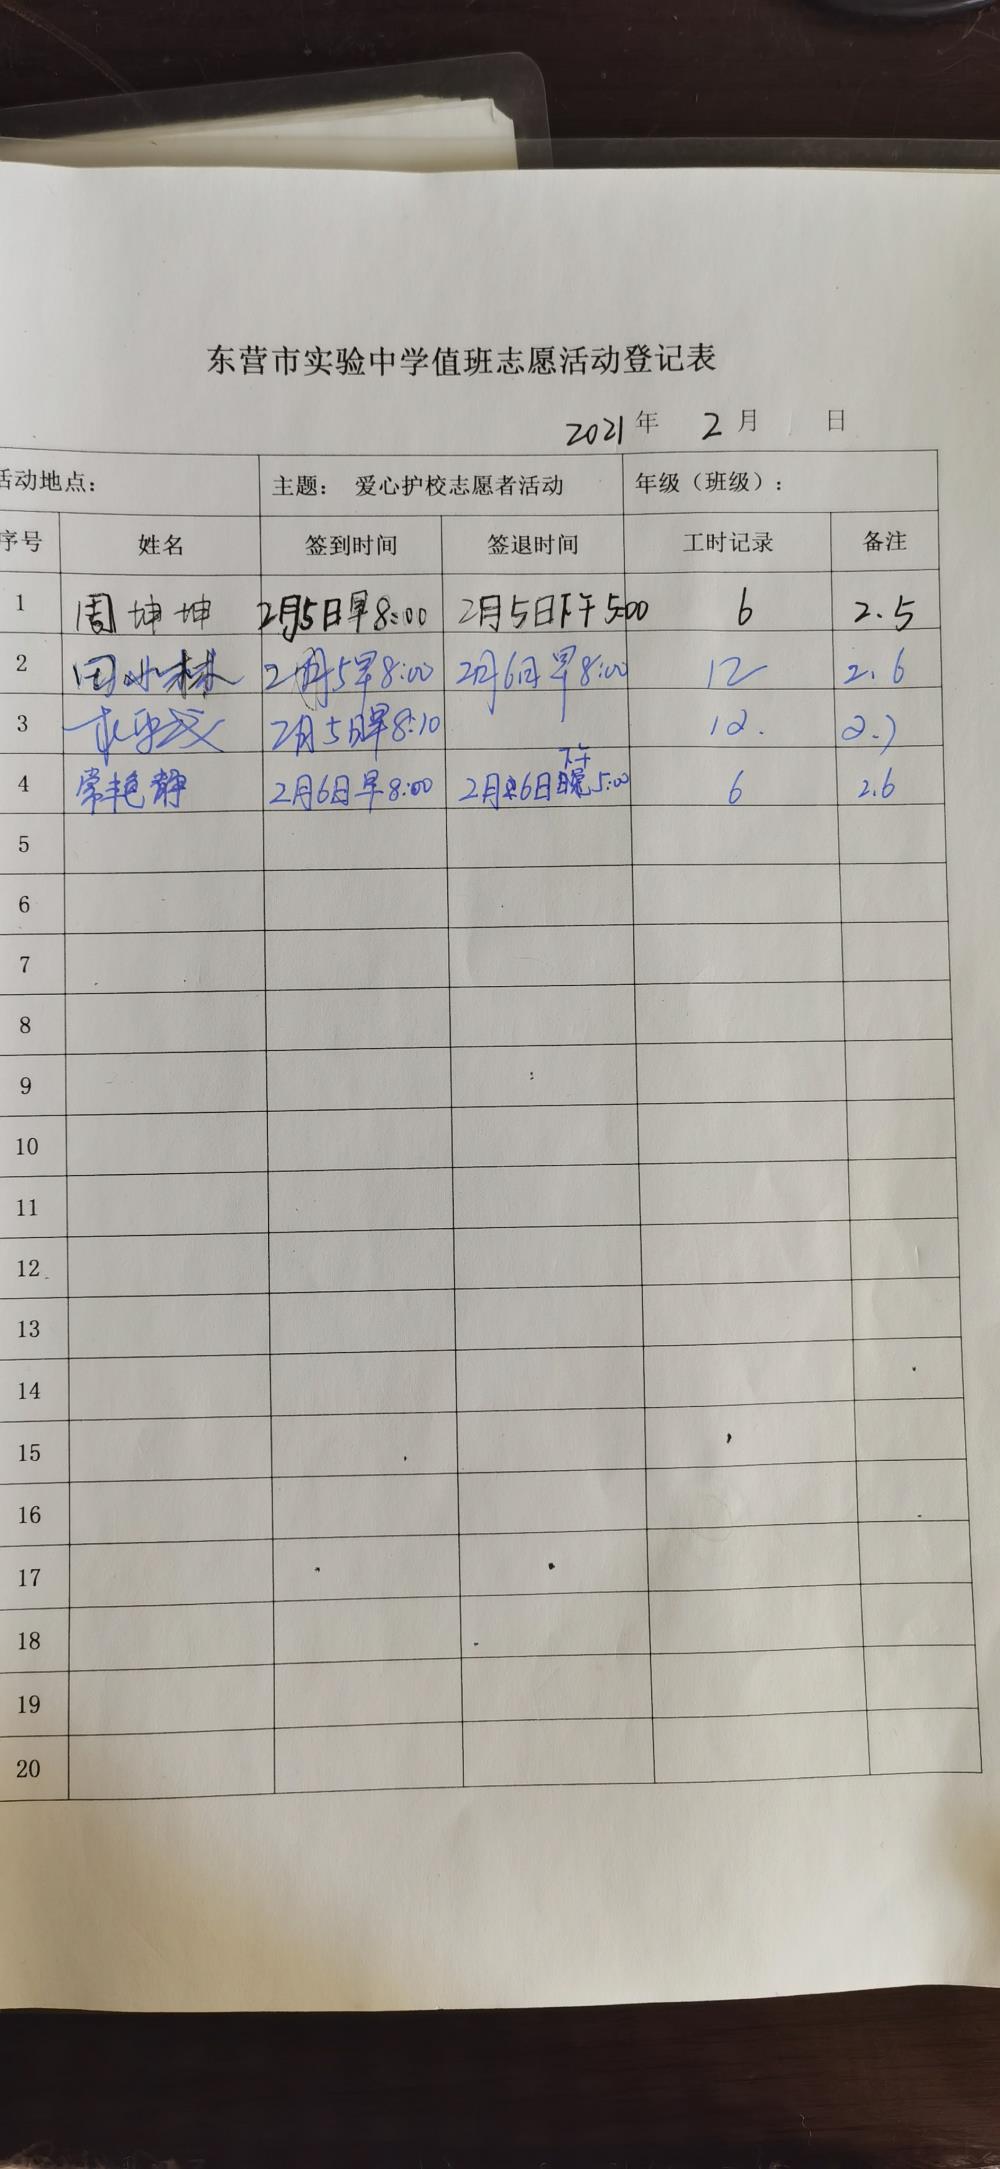 东营市实验中学值班志愿活动登记表
2021年 2月 日
活动地点： 主题： 爱心护校志愿者活动 年级（班级）：
序号 姓名 签到时间 签退时间 工时记录 备注
1 周坤坤 2月5日早8:00 2月5日下午5:00 6 2.5
2 2月5早8:00 2月6日早8:00 12 2.6
3 2月5日早8:10 12. 2.7
下午
4 常艳静 2月6日早8:00 2月6日晚5:00 6 2.6
5
6
7
8
9
10
11
12
13
14
15
16
17
18
19
20